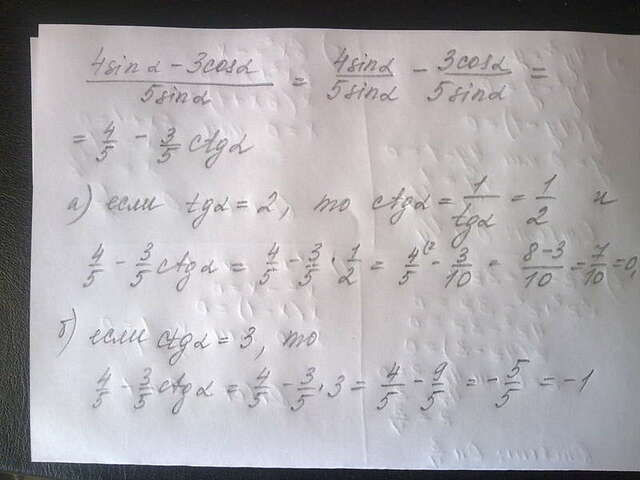 (4sinα - 3cosα)/(5sinα) = 4sinα/5sinα - 3cosα/5sinα =
= 4/5 - 3/5 ctgα
а) если tgα = 2, то ctgα = 1/tgα = 1/2 и
4/5 - 3/5 ctgα = 4/5 - 3/5 · 1/2 = 4/5 (2 - 3/10 = (8-3)/10 = 7/10 = 0,
б) если ctgα = 3, то
4/5 - 3/5 ctgα = 4/5 - 3/5 · 3 = 4/5 - 9/5 = - 5/5 = -1